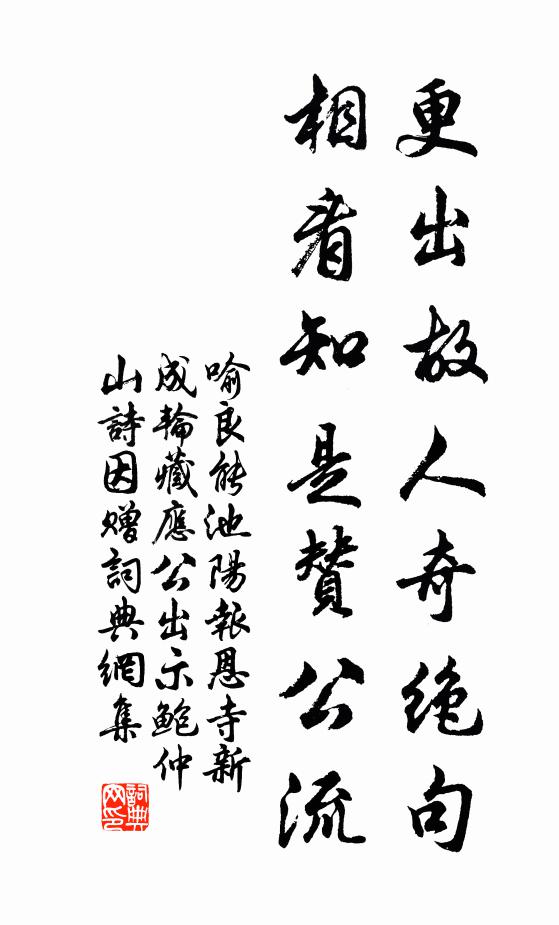 更出故人奇绝句
相看知是賛公流
喻良能池陽報恩寺新
成輪藏應公出示鮑仲
山詩因赠詞典網集
詞典
网印